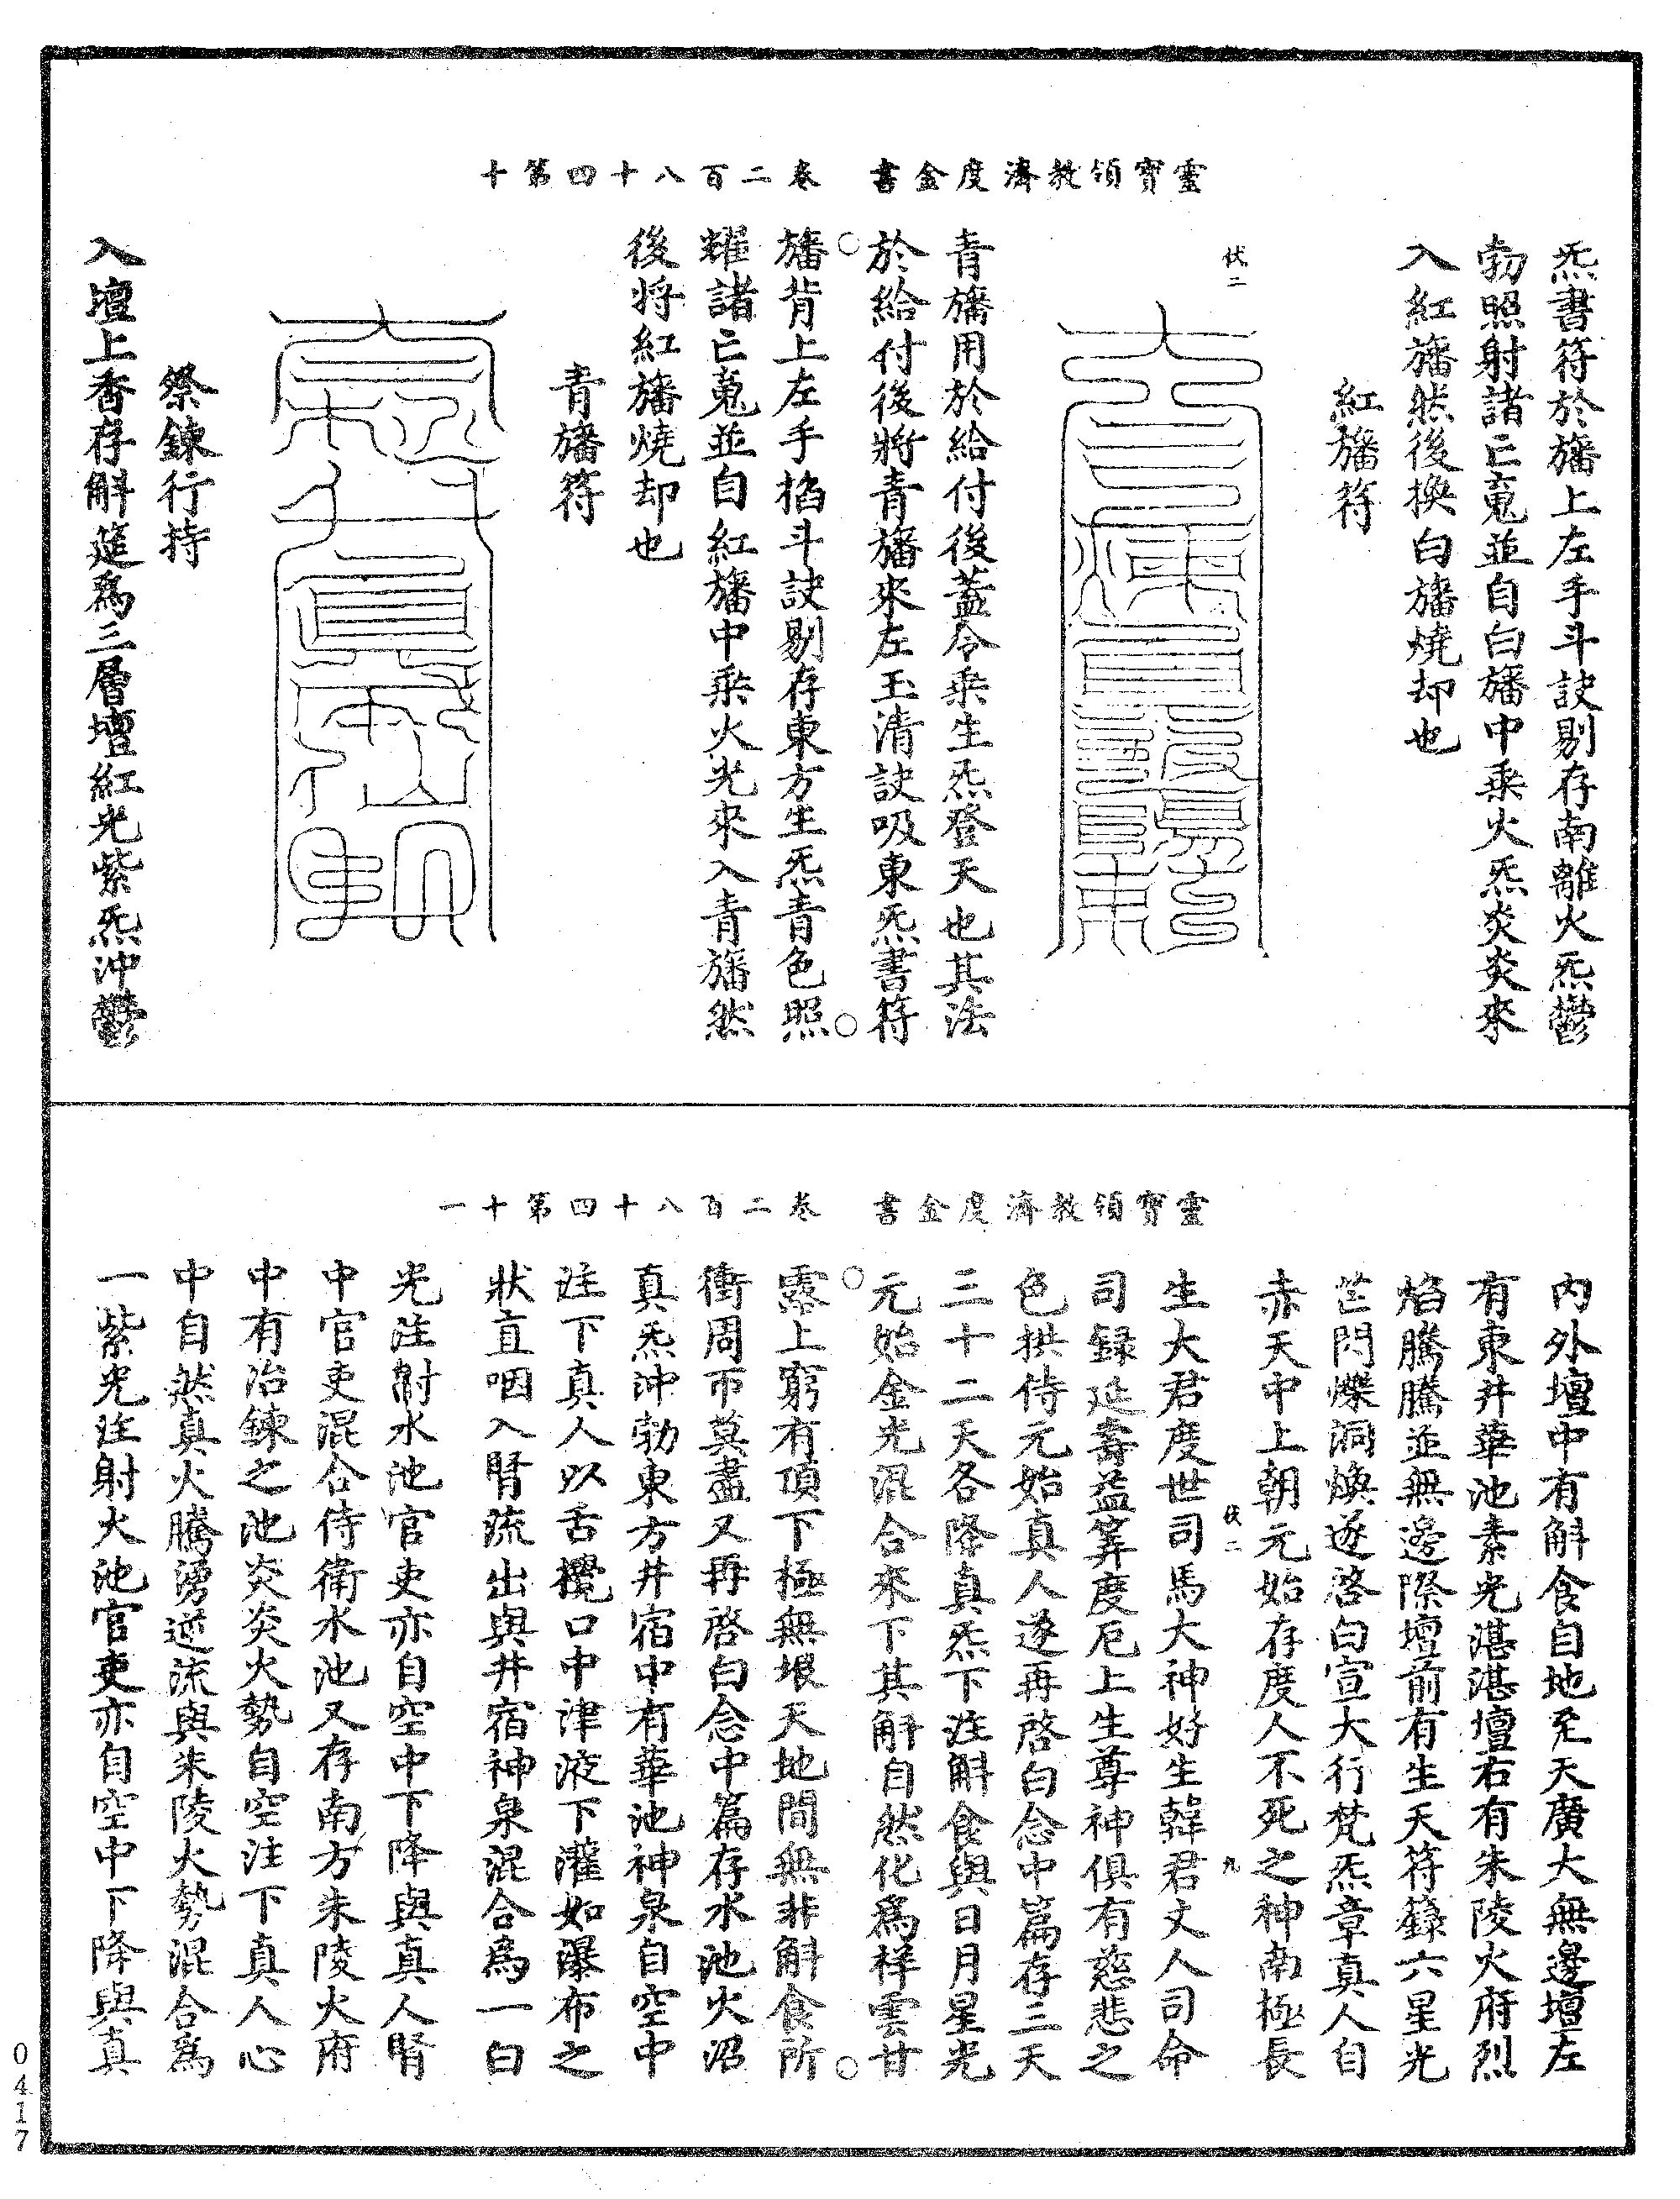 靈寶領教濟度金書　卷二百八十四第十
炁書符於旛上左手斗訣剔存南離火炁鬱
勃照射諸亡䰟並自白旛中乘火炁炎炎來
入紅旛然後換白旛燒却也
紅旛符
伏二
青旛用於給付後蓋令乘生炁登天也其法
於給付後將青旛來左玉清訣吸東炁書符
旛背上左手掐斗訣剔存東方生炁青色照
耀諸亡䰟並自紅旛中乘火光來入青旛然
後將紅旛燒却也
青旛符
祭鍊行持
入壇上香存斛筵爲三層壇紅光紫炁沖鬱
靈寶領教濟度金書　卷二百八十四第十一
內外壇中有斛食自地充天廣大無邊壇左
有東井華池素光湛湛壇右有朱陵火府烈
焰騰騰並無邊際壇前有生天符籙六星光
芒閃爍洞煥遂啓白宣大行梵炁章真人自
赤天中上朝元始存度人不死之神南極長
伏二　九
生大君度世司馬大神好生韓君丈人司命
司録延壽益筭度厄上生尊神俱有慈悲之
色拱侍元始真人遂再啓白念中篇存三天
三十二天各降真炁下注斛食與日月星光
元始金光混合來下其斛自然化爲祥雲甘
露上窮有頂下極無垠天地間無非斛食所
衝周帀莫盡又再啓白念中篇存水池火沼
真炁沖勃東方井宿中有華池神泉自空中
注下真人以舌攪口中津液下灌如瀑布之
狀直咽入腎流出與井宿神泉混合爲一白
光注射水池官吏亦自空中下降與真人腎
中官吏混合侍衛水池又存南方朱陵火府
中有冶鍊之池炎炎火勢自空注下真人心
中自然真火騰湧逆流與朱陵火勢混合爲
一紫光注射火池官吏亦自空中下降與真
0417